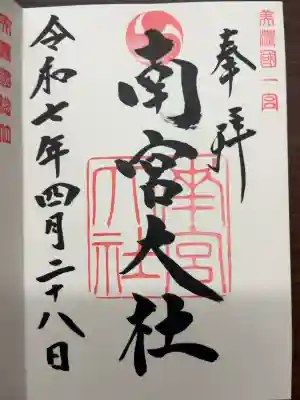 美濃國一宮
奉拝
南宮大社
南宮大社
令和七年四月二十八日